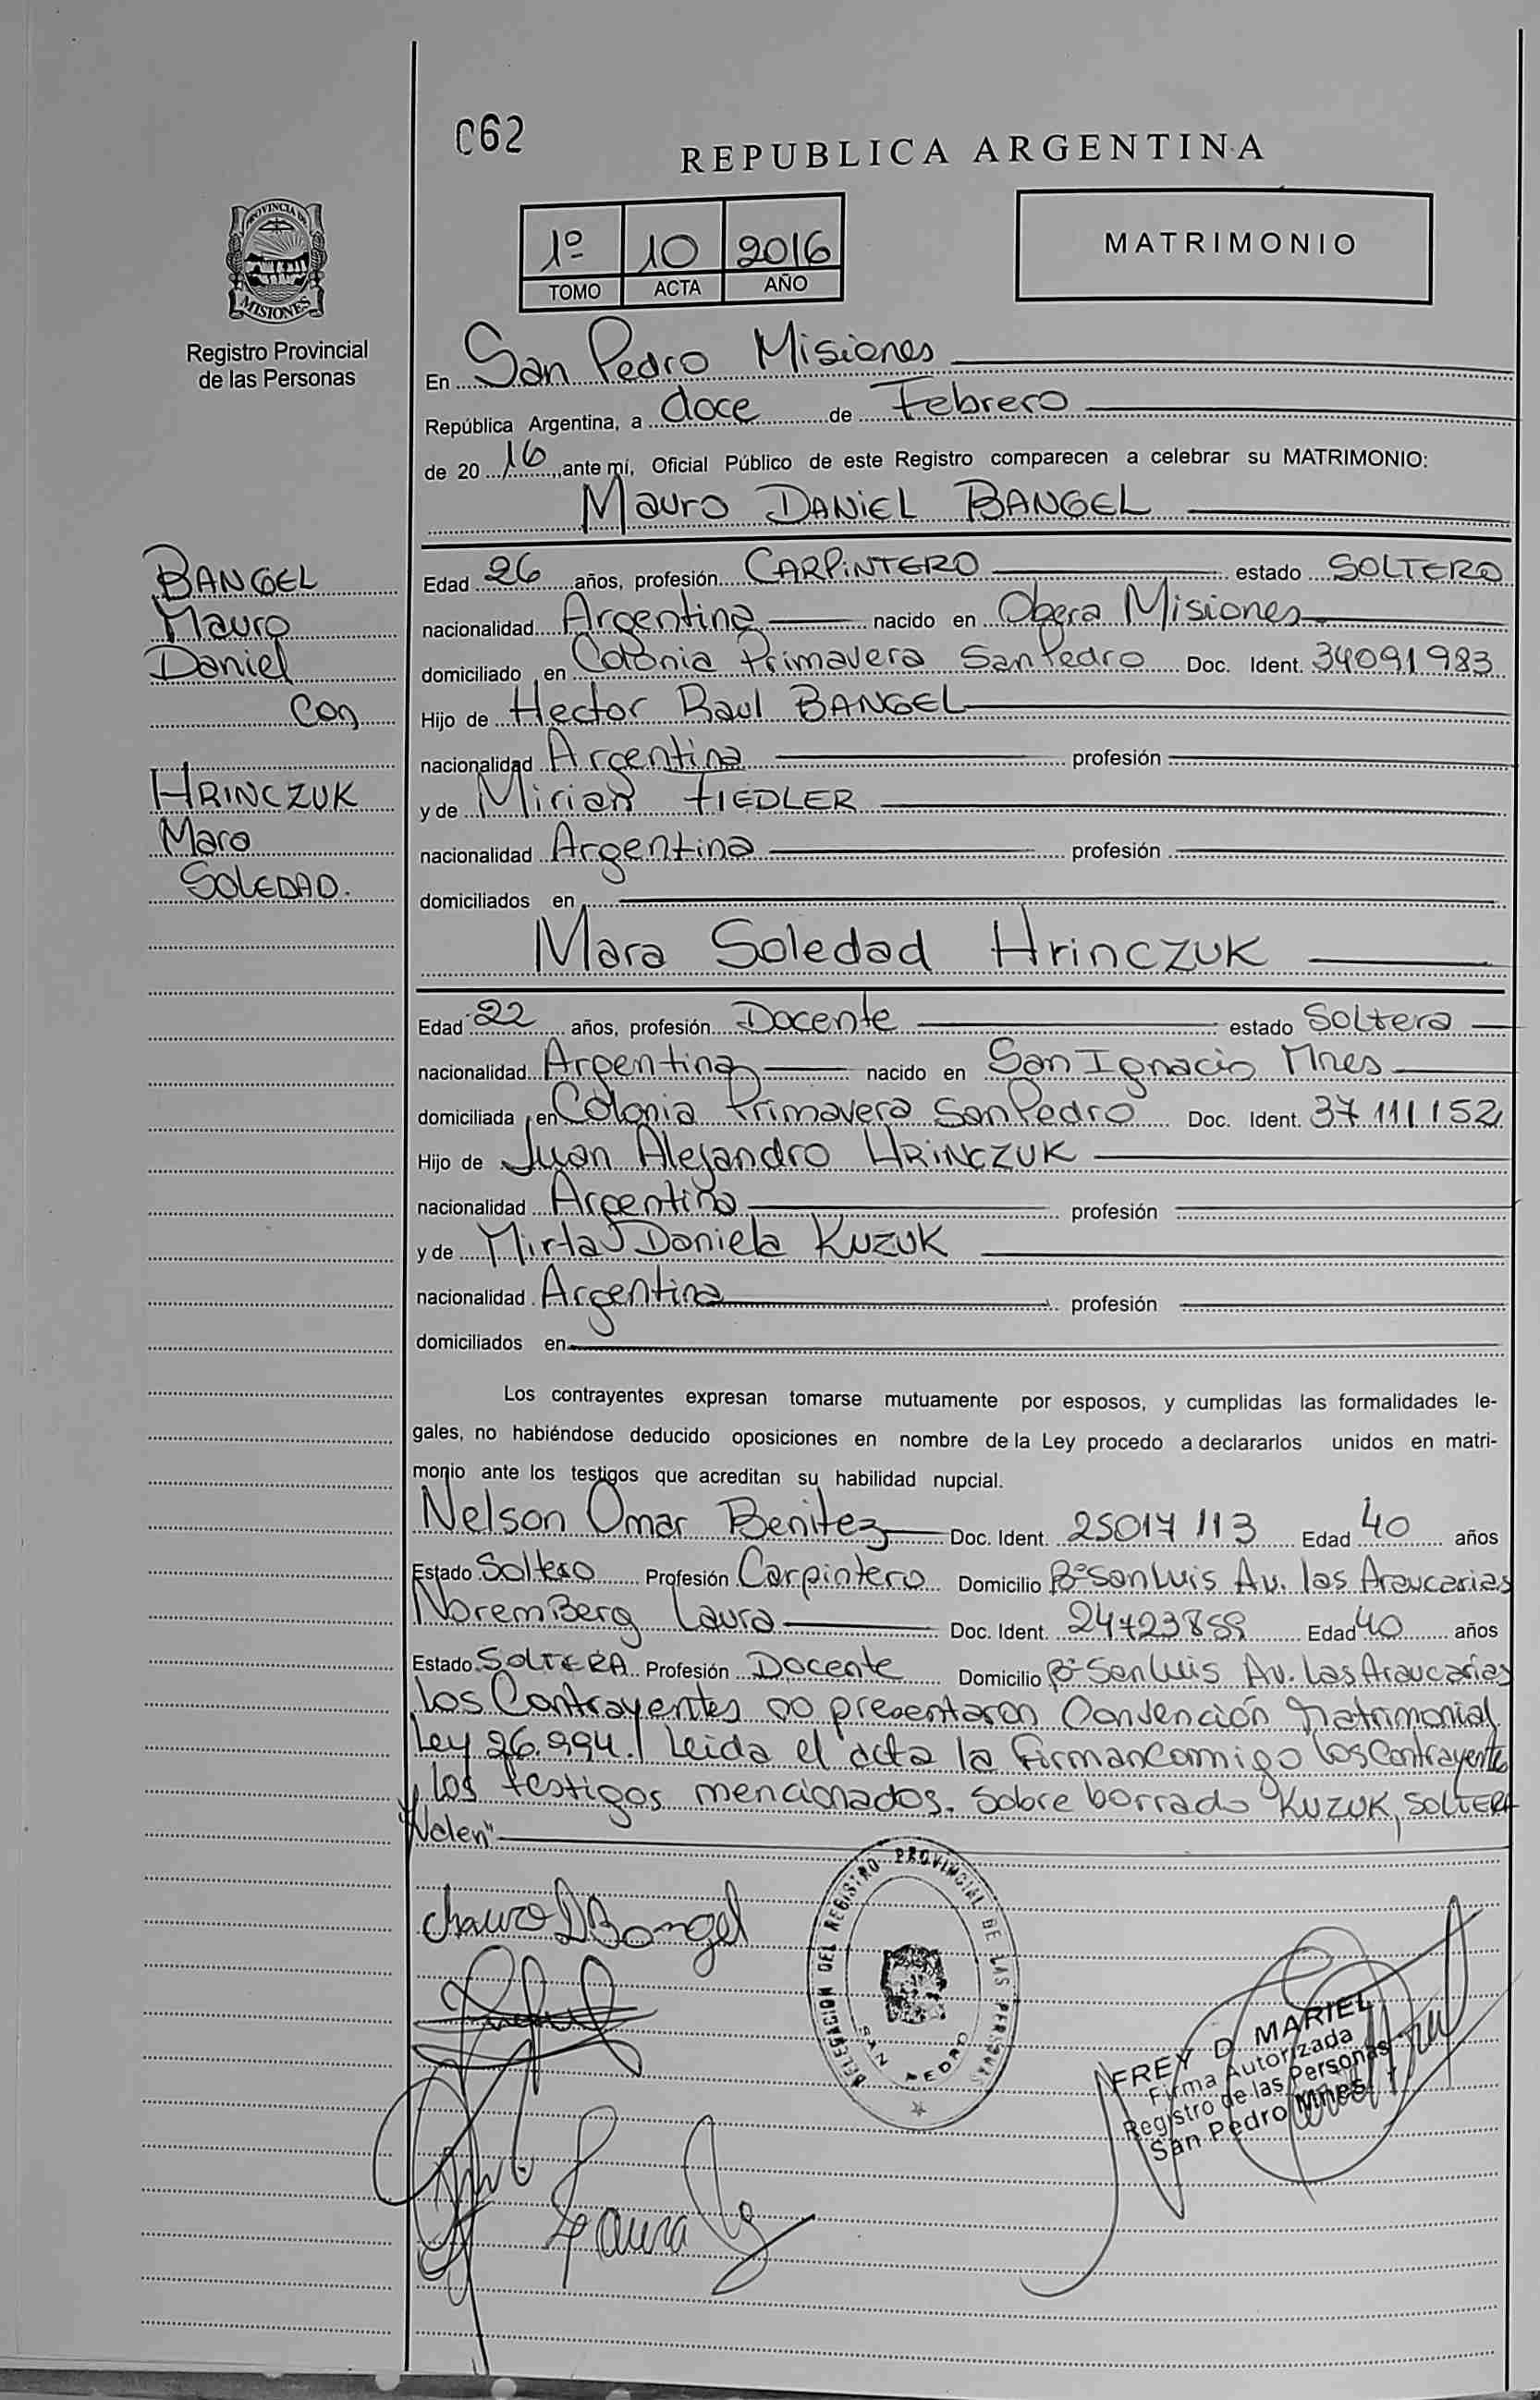 C62
REPUBLICA ARGENTINA
PROVINCIA DE
MISIONES
Registro Provincial
de las Personas
1º 10 2016
TOMO ACTA AÑO
MATRIMONIO
En San Pedro Misiones
República Argentina, a doce de Febrero
de 20 16, ante mí, Oficial Público de este Registro comparecen a celebrar su MATRIMONIO:
Mauro DANIEL BANGEL
BANGEL
Mauro
Daniel
Con
HRINCZUK
Mara
SOLEDAD.
Edad 26 años, profesión CARPINTERO estado SOLTERO
nacionalidad Argentina nacido en Obera Misiones
domiciliado en Colonia Primavera San Pedro Doc. Ident. 34091983
Hijo de Hector Raul BANGEL
nacionalidad Argentina profesión
y de Mirian FIEDLER
nacionalidad Argentina profesión
domiciliados en
Mara Soledad HrinczUK
Edad 22 años, profesión Docente estado Soltera
nacionalidad Argentina nacido en San Ignacio Mnes
domiciliada en Colonia Primavera San Pedro Doc. Ident. 37 111 152
Hijo de Juan Alejandro HRINCZUK
nacionalidad Argentina profesión
y de Mirta Daniela KUZUK
nacionalidad Argentina profesión
domiciliados en
Los contrayentes expresan tomarse mutuamente por esposos, y cumplidas las formalidades le-
gales, no habiéndose deducido oposiciones en nombre de la Ley procedo a declararlos unidos en matri-
monio ante los testigos que acreditan su habilidad nupcial.
Nelson Omar Benitez Doc. Ident. 25017 113 Edad 40 años
Estado Soltero Profesión Carpintero Domicilio Bº San Luis Av. las Araucarias
NoremBerg Laura Doc. Ident. 24723859 Edad 40 años
Estado SOLTERA Profesión Docente Domicilio Bº San Luis Av. Las Araucarias
Los Contrayentes no presentaron Convención Matrimonial
Ley 26.994. Leida el acta la firman comigo los Contrayente
y los testigos mencionados. Sobre borrado "KUZUK, SOLTERA
Valen"
Mauro D Bangel
DELEGACION DEL REGISTRO PROVINCIAL DE LAS PERSONAS
SAN PEDRO
FREY D. MARIEL
Firma Autorizada
Registro de las Personas
San Pedro Mnes.
Laura